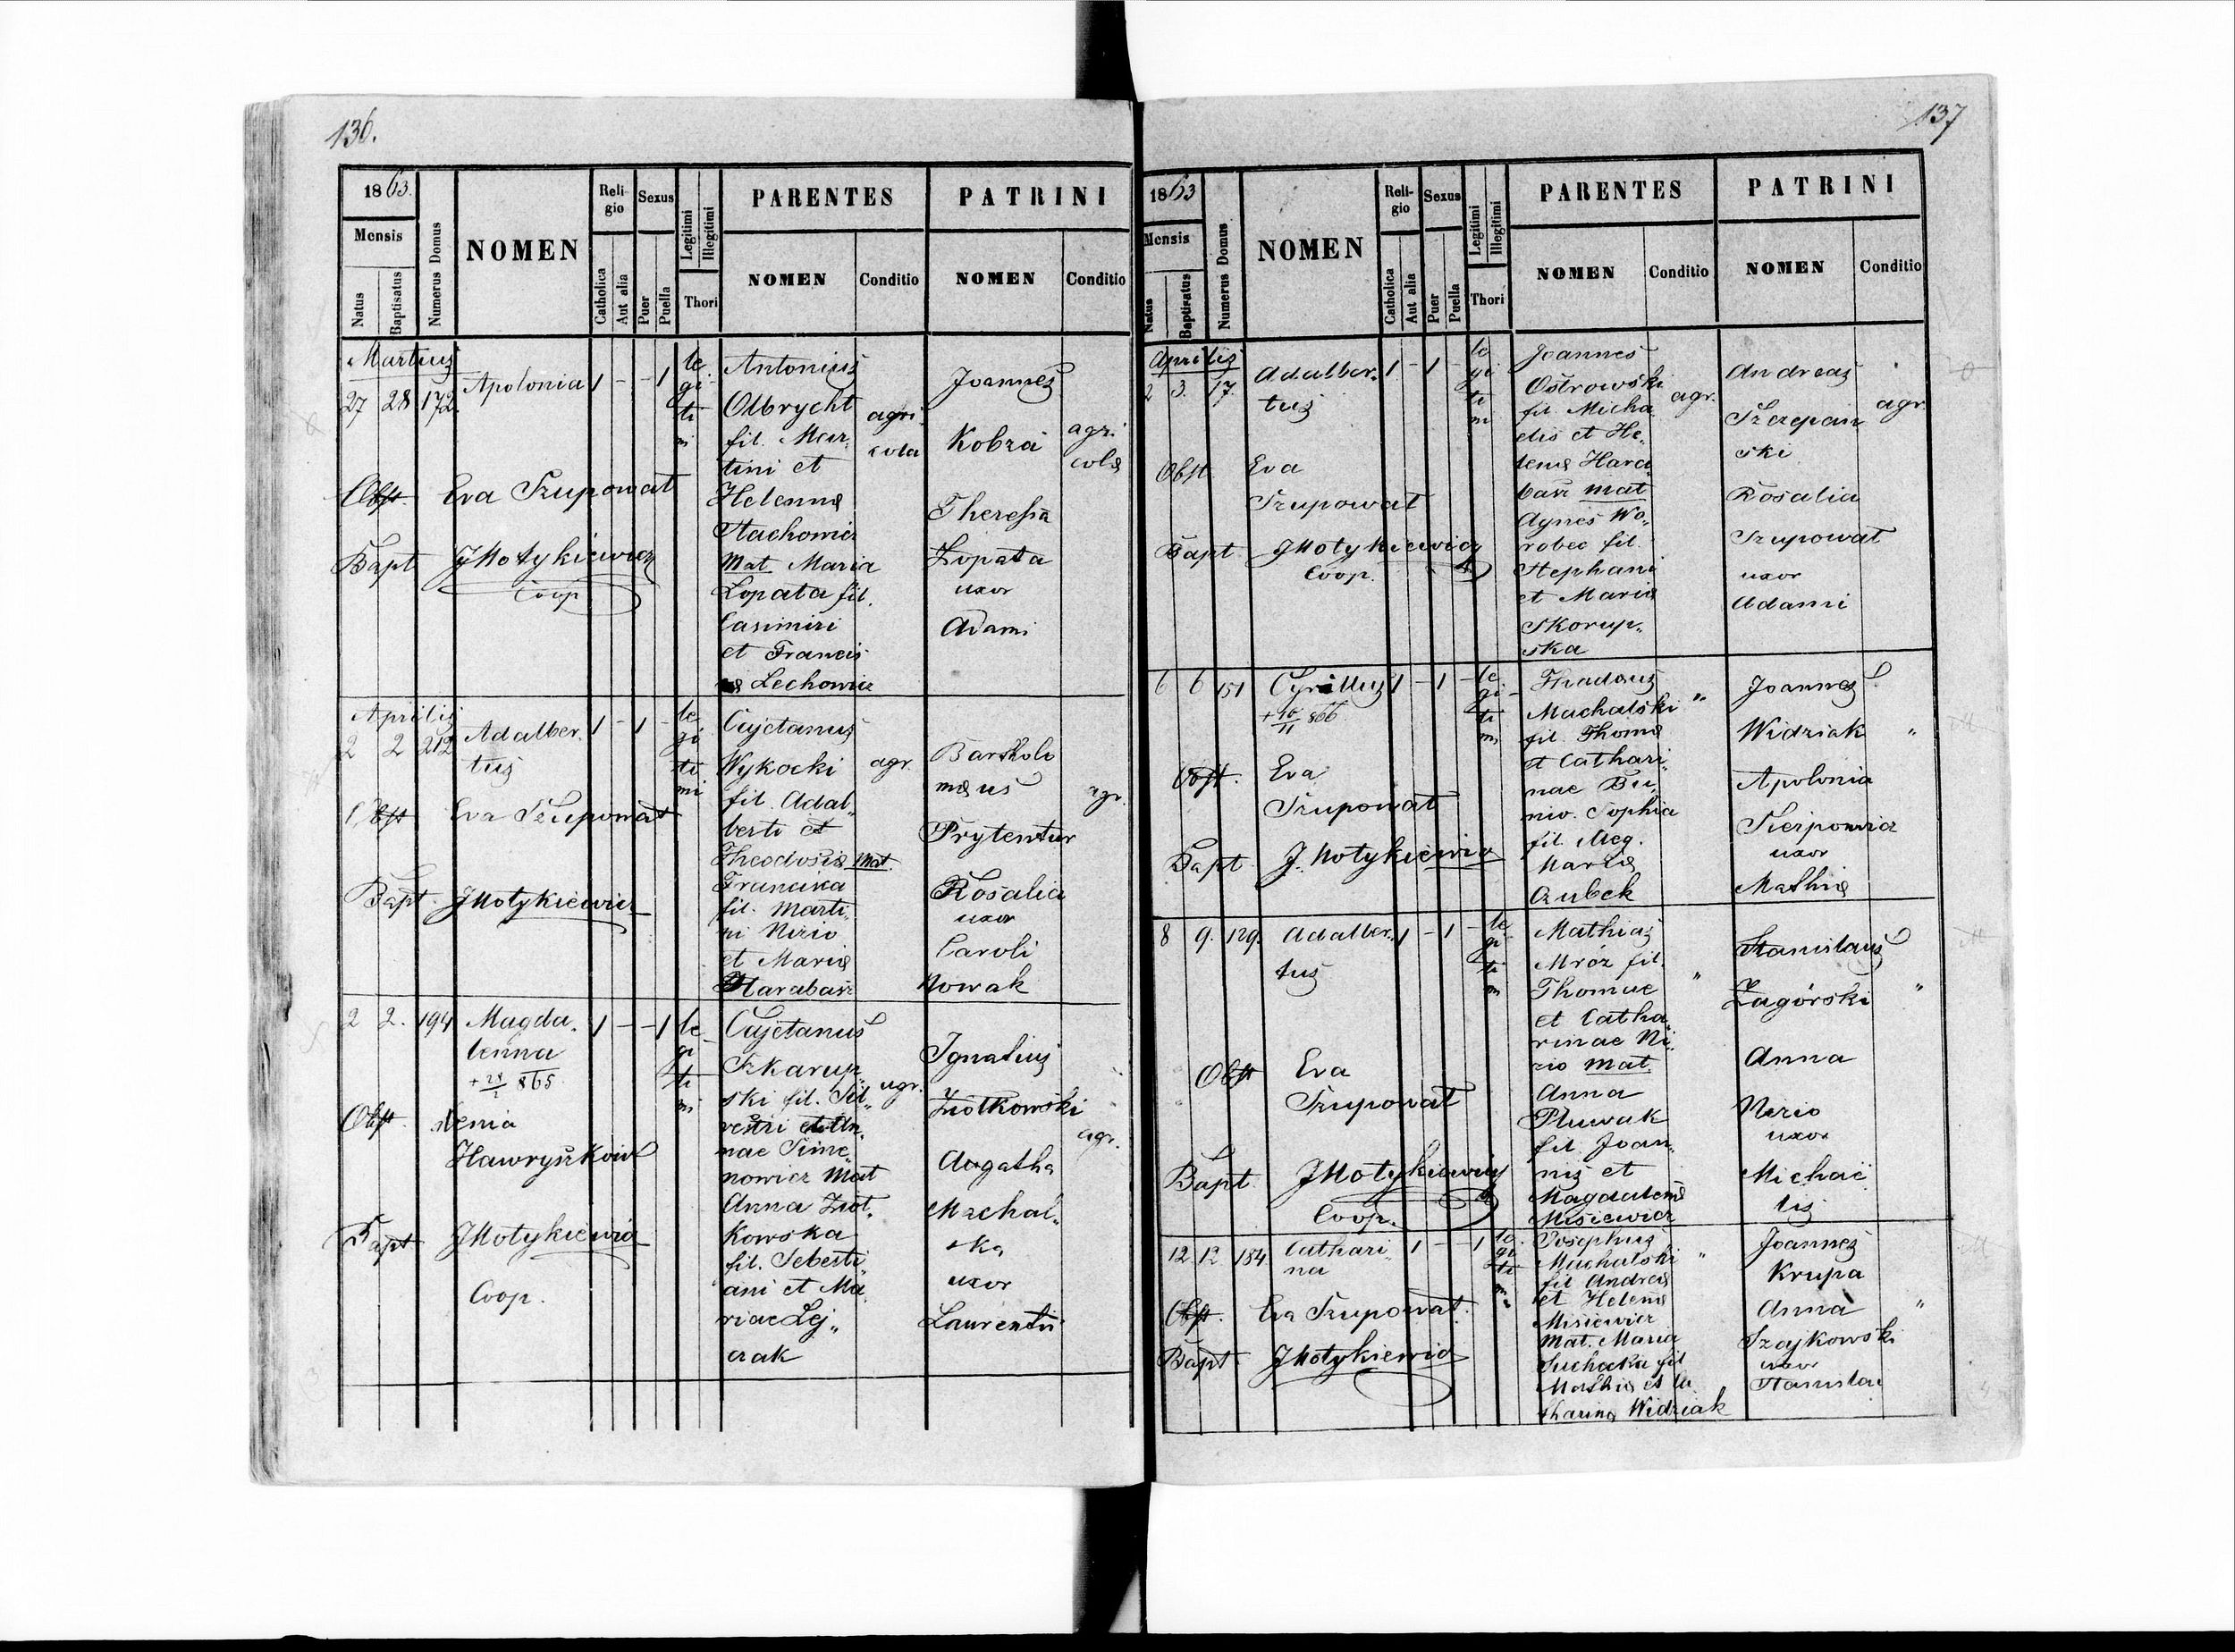 136.
1863.
Mensis
Natus
Baptisatus
Numerus Domus
NOMEN
Reli-
gio
Catholica
Aut alia
Sexus
Puer
Puella
Legitimi
Illegitimi
Thori
PARENTES
NOMEN
Conditio
PATRINI
NOMEN
Conditio
Martius
27 28 172 Apolonia 1 - - 1
le
gi
ti
mi
Obst. Eva Szupowat
Bapt JMotykiewicz
Coop
Antonius
Olbrycht
fil. Mar„
tini et
Helennæ
Stachowicz
Mat Maria
Lopata fil.
Casimiri
et Francis
Lechowicz
agri
cola
Joannes
Kobza
Theresia
Lopata
uxor
Adami
agri
colæ
Aprilis
2 2 212 Adalber„ 1 - 1 -
tus
le
gi
ti
mi
Obst Eva Szupowat
Bapt. JMotykiewicz
Cajetanus
Wykocki
fil. Adal„
berti et
Theodosiæ Mat.
Fil. Marti
ni Nizio
et Mariæ
Harabasz
agr.
Bartholo
mæus
Prytentur
Rosalia
uxor
Caroli
Nowak
agr.
2 2. 194 Magda„ 1 - - 1
lenna
+ 865
le
gi
ti
mi
Obst. Xenia
Hawryszkow
Bapt JMotykiewicz
Coop.
Cajetanus
Szkarup„
ski fil. Sil„
vestri et An„
nae Sime„
nowicz Mat
Anna Ziół„
kowska
fil. Sebesti
ani et Ma
riae Lej„
czak
agr.
Ignatius
Ziółkowski
Aagatha
Machal„
ska
uxor
Laurentii
agr.
137
1863
Mensis
Natus
Baptisatus
Numerus Domus
NOMEN
Reli-
gio
Catholica
Aut alia
Sexus
Puer
Puella
Legitimi
Illegitimi
Thori
PARENTES
NOMEN
Conditio
PATRINI
NOMEN
Conditio
Aprilis
2 3. 17. Adalber„ 1 - 1 -
tus
le
gi
ti
mi
Obst. Eva
Szupowat
Bapt. JMotykiewicz
Coop.
Joannes
Ostrowski
fil. Micha
elis et He„
lenæ Hara
basz mat
Agnes Wo„
robec fil.
Stephani
et Mariæ
Skorup„
ska
agr.
Andreas
Szczepan
ski
Rosalia
Szupowat
uxor
Adami
agr.
6 6 151 Cyrillus 1 - 1 -
+ 16/11 866
le
gi
ti
mi
Obst. Eva
Szupowat
Bapt. J. Motykiewicz
Thadeus
Machalski "
fil. Thomæ
et Cathari„
nae Bu„
Sophia
fil. Meg.
Mariæ
Czubek
Joannes
Widziak "
Apolonia
Sierpowicz
uxor
Mathiæ
8 9. 129. Adalber„ 1 - 1 -
tus
le
gi
ti
mi
Obst Eva
Szupowat
Bapt. JMotykiewicz
Coop.
Mathias
Mróz fil.
Thomae "
et Catha„
rinae Ni„
zio mat.
Anna
Pluwak
fil. Joan„
nis et
Magdalenæ
Misiewicz
Stanislaus
Zagórski "
Anna
Nizio
uxor
Michaë
lis
12 12 184 Cathari„ 1 - - 1
na
le
gi
ti
mi
Obst. Eva Szupowat.
Bapt JMotykiewicz
Josephus
Machalski "
fil Andreæ
et Helenæ
Misiewicz
Mat. Maria
Suchecka fil
Mathiæ et Ca„
tharinæ Widziak
Joannes
Krupa
Anna "
Szajkowski
uxor
Stanislai